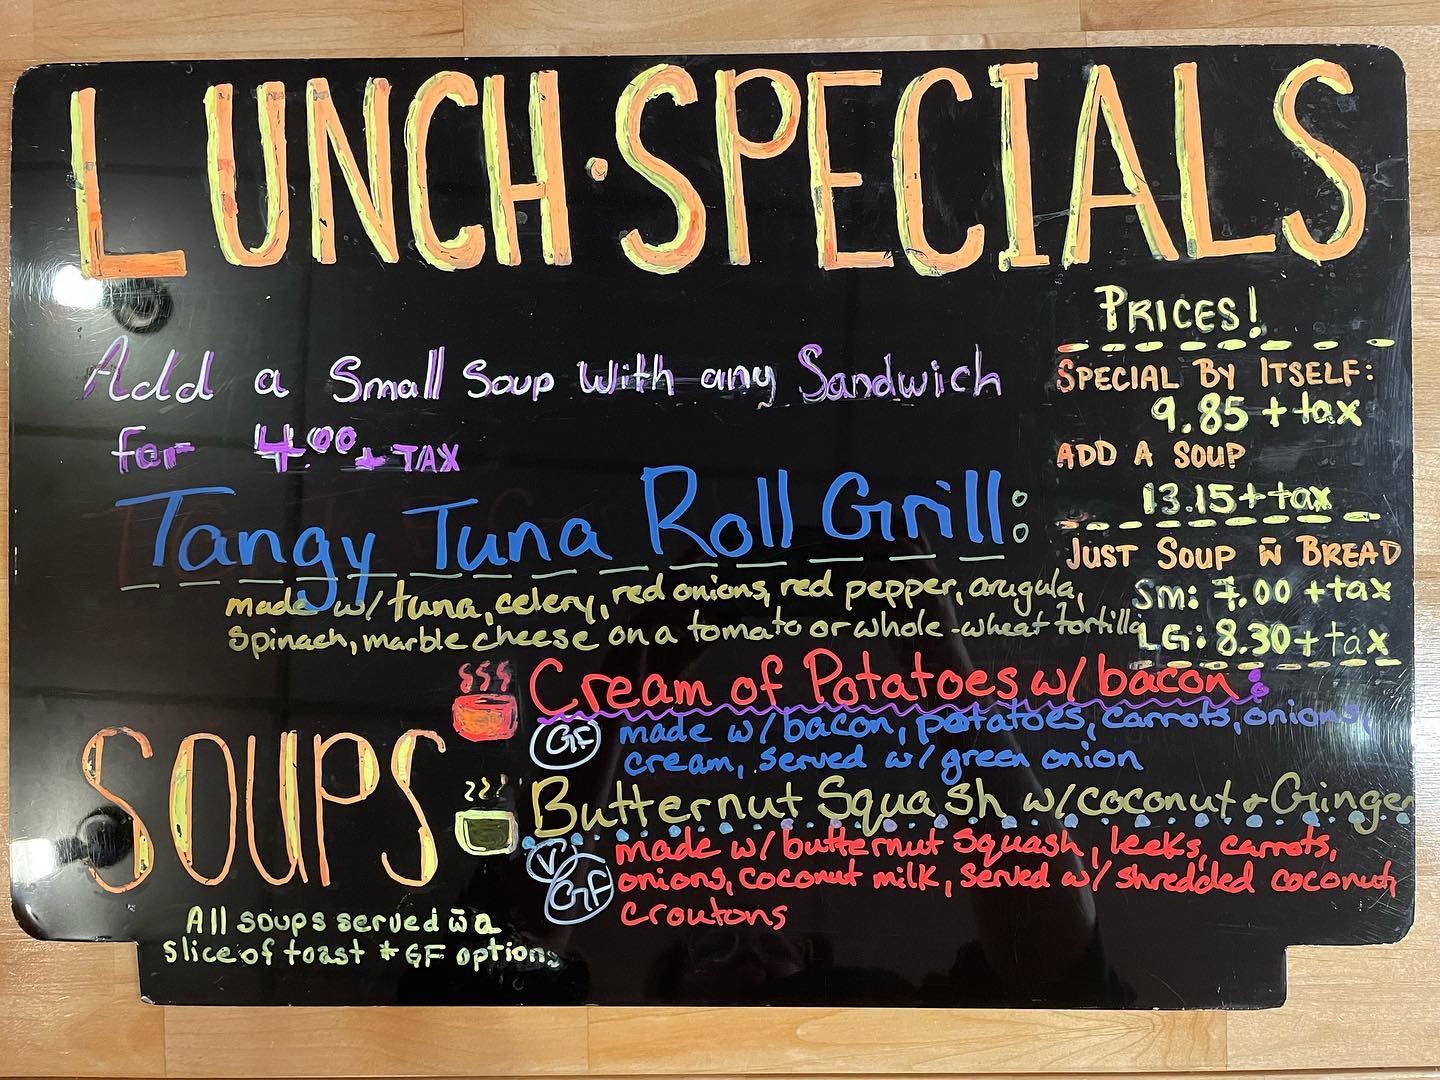 LUNCH·SPECIALS
Add a Small Soup with any Sandwich
for 4.00 + TAX
PRICES!
SPECIAL BY ITSELF:
9.85 + tax
ADD A SOUP
13.15 + tax
JUST SOUP w̄ BREAD
Sm: 7.00 + tax
LG: 8.30 + tax
Tangy Tuna Roll Grill:
made w/ tuna, celery, red onions, red pepper, arugula,
spinach, marble cheese on a tomato or whole-wheat tortilla
SOUPS
Cream of Potatoes w/ bacon:
GF
made w/ bacon, potatoes, carrots, onions,
cream, served w/ green onion
Butternut Squash w/ coconut + Ginger
V
GF
made w/ butternut squash, leeks, carrots,
onions, coconut milk, served w/ shredded coconut,
croutons
All soups served w̄ a
slice of toast * GF options